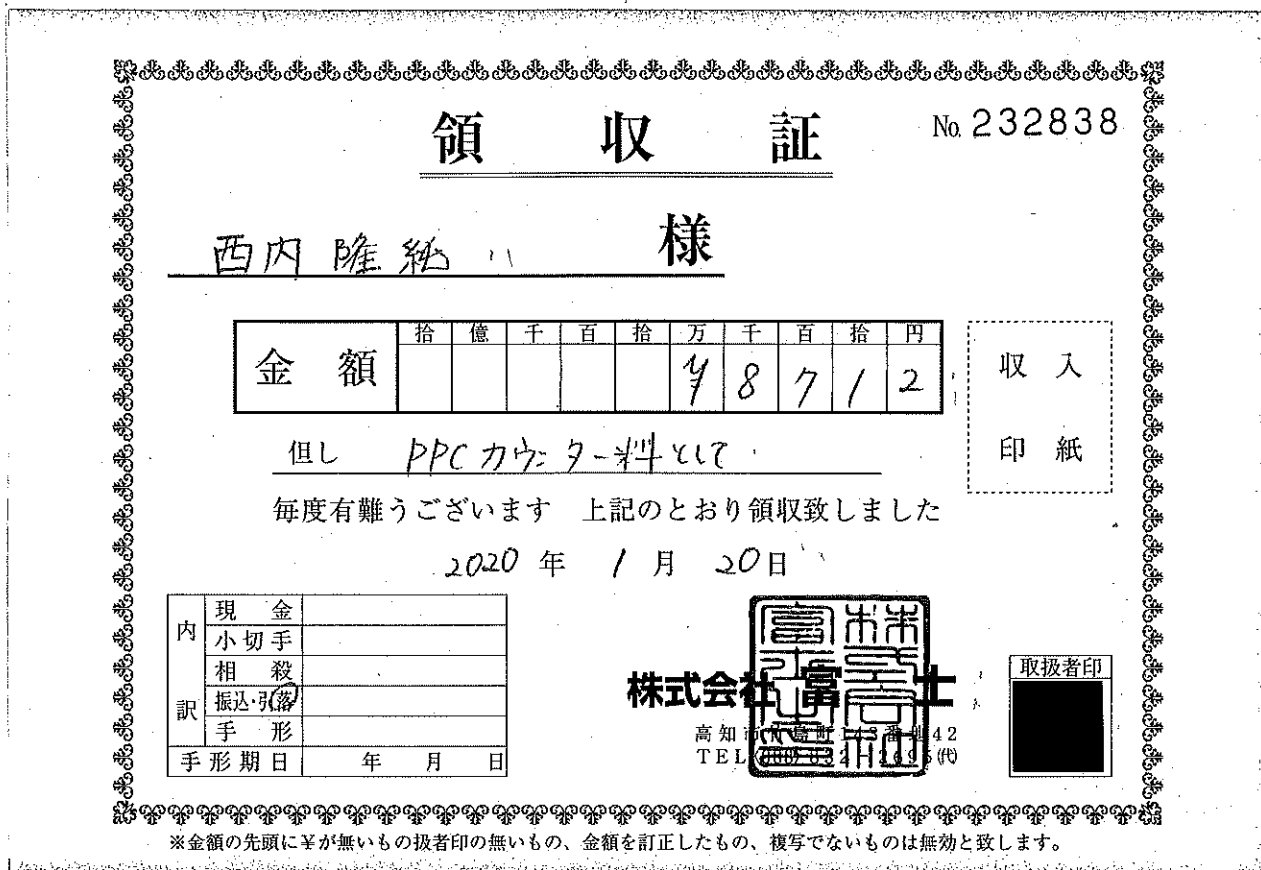 領収証
No. 232838
西内隆純 様
金額
拾 億 千 百 拾 万 千 百 拾 円
¥ 8 7 1 2
収入
印紙
但し PPCカウンター料として
毎度有難うございます 上記のとおり領収致しました
2020年 1月 20日
内訳
現金
小切手
相殺
振込・引落
手形
手形期日 年 月 日
株式会社 富士
高知市 町143番地42
TEL (代)
取扱者印
※金額の先頭に¥が無いもの扱者印の無いもの、金額を訂正したもの、複写でないものは無効と致します。